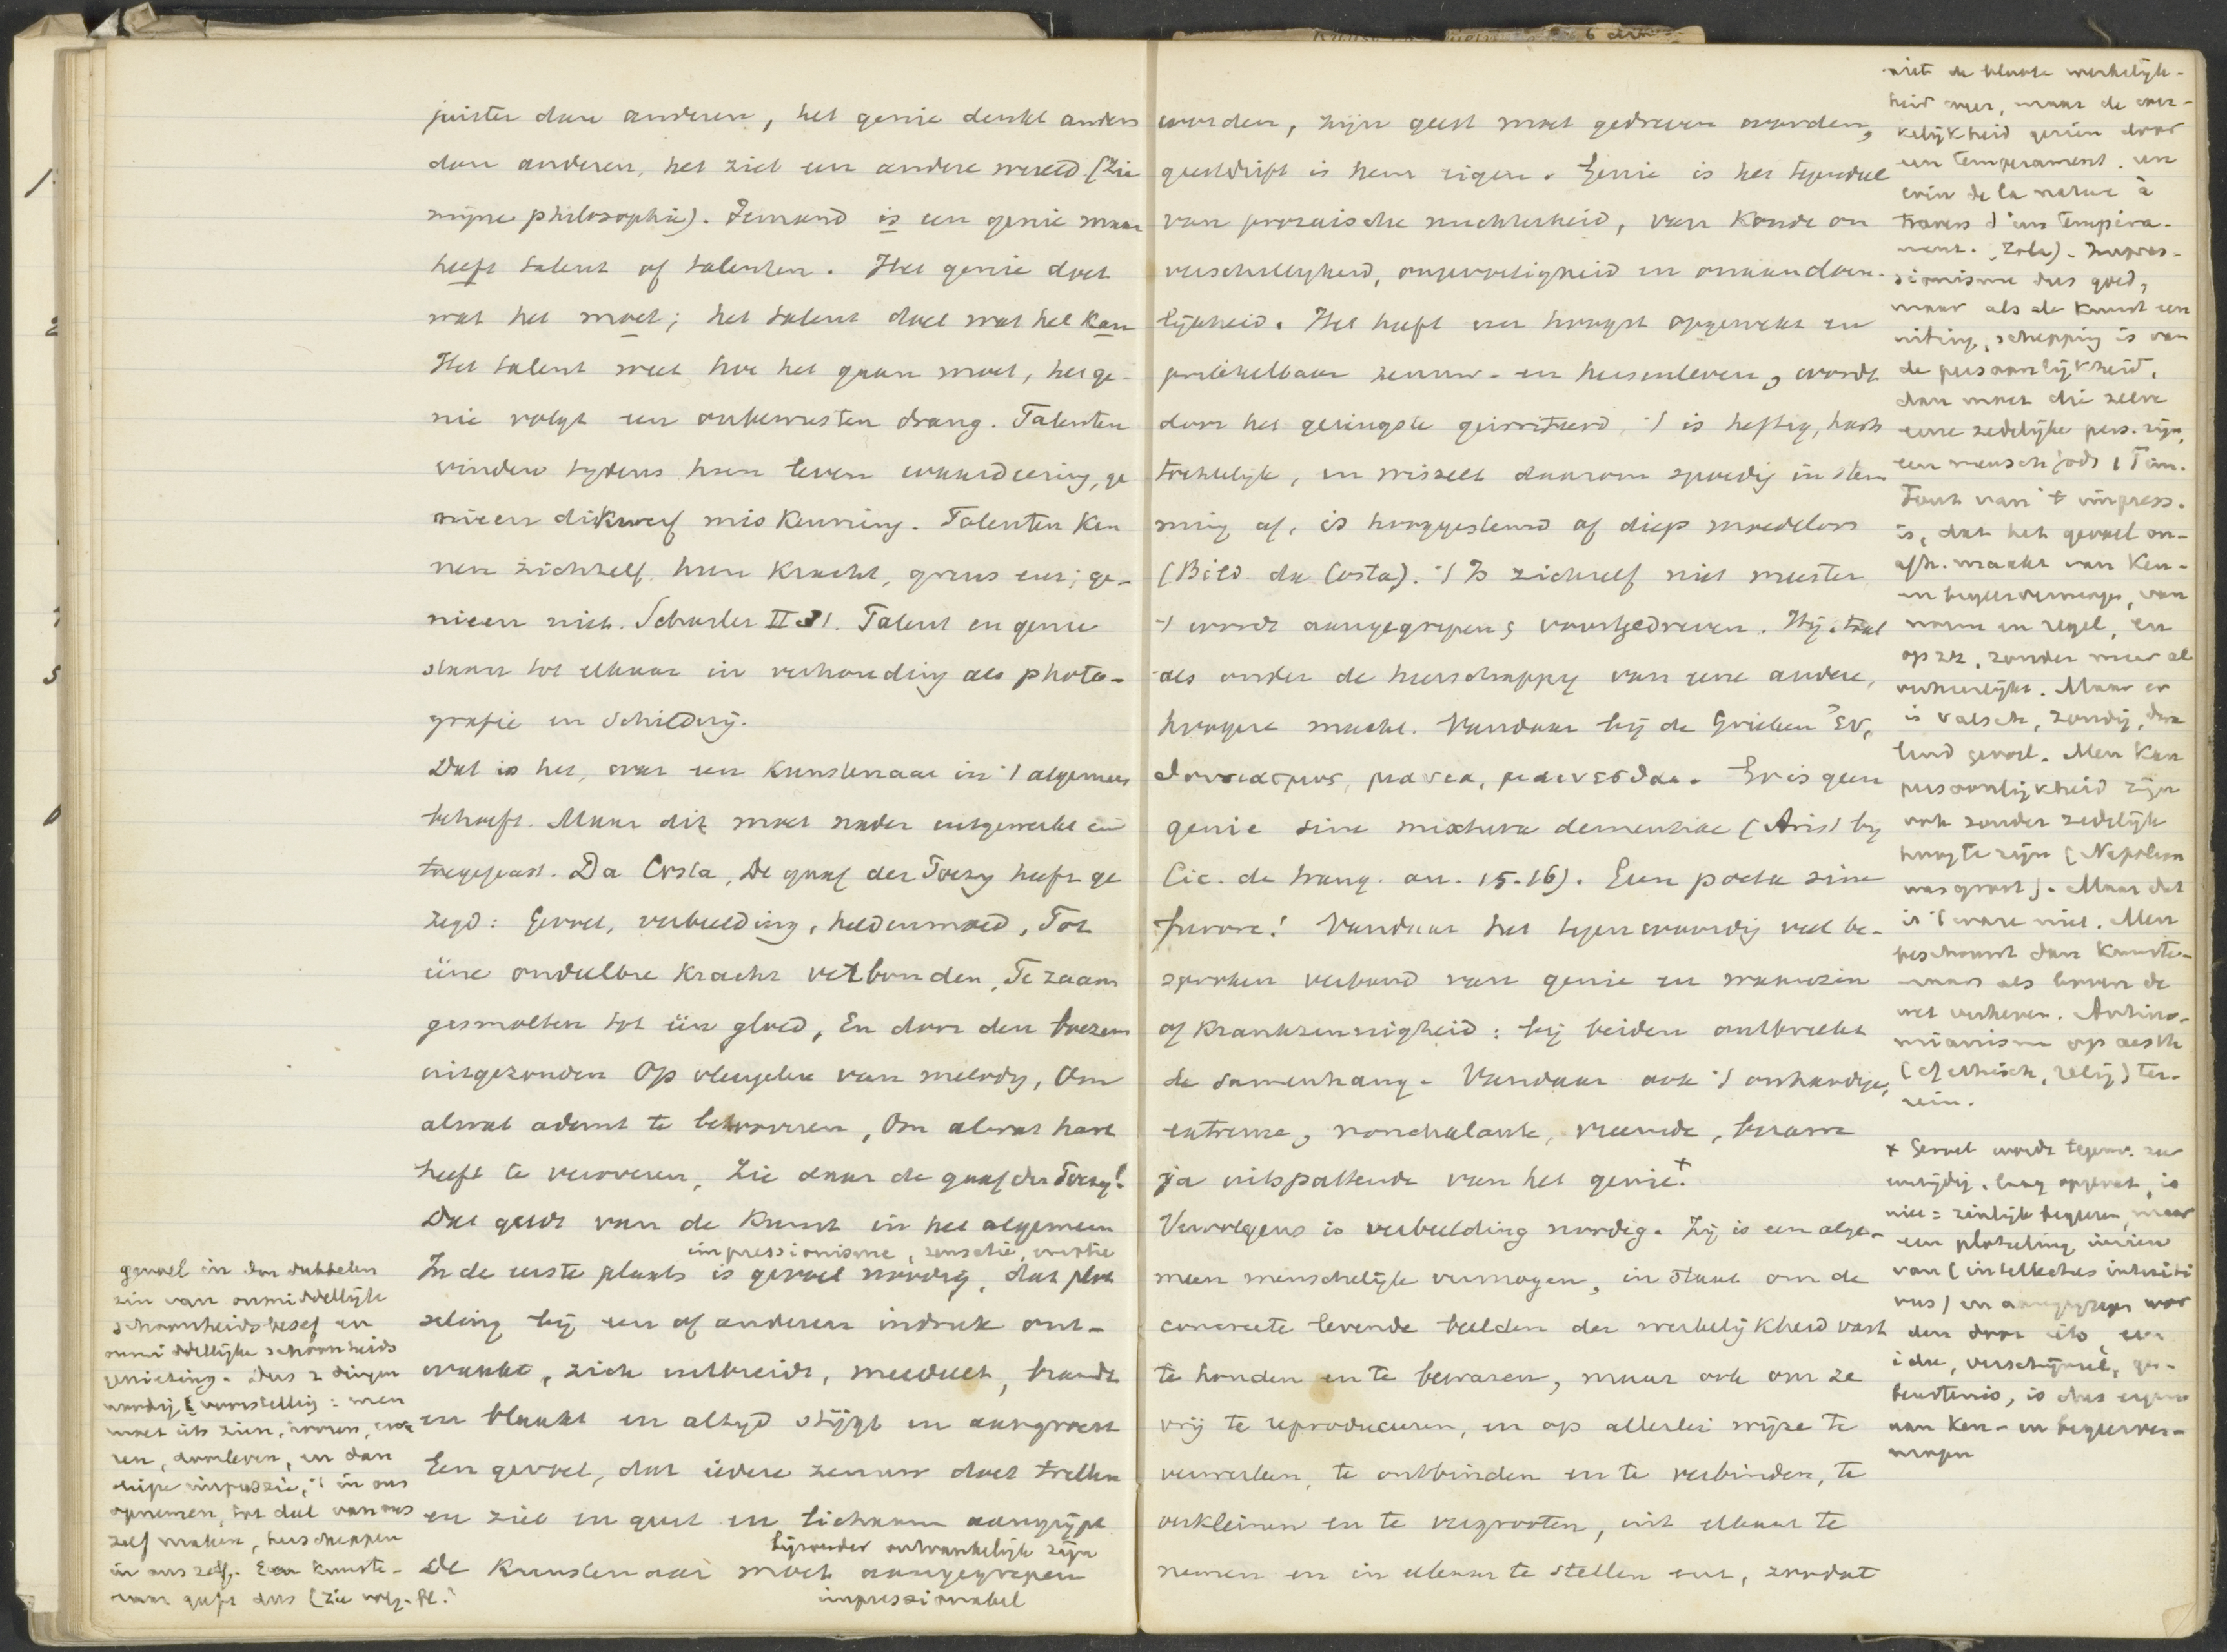 juister dan anderen, het genie denkt anders
dan anderen, het ziet een andere wereld (Zie
mijne philosophie). Iemand is een genie maar
heeft talent of talenten. Het genie doet
wat het moet; het talent doet wat het kan
Het talent weet hoe het gaan moet, het ge-
nie volgt een onbewusten drang. Talenten
vinden tydens hun leven waardeering, ge
nieen dikwerf miskenning. Talenten ken
nen zichzelf, hun kracht, grens enz; ge-
nieen niet. Scharler II 31. Talent en genie
staan tot elkaar in verhouding als photo-
grafie en schilderij.
Dat is het, wat een kunstenaar in 't algemeen
behoeft. Maar dit moet nader uitgewerkt en
toegepast. Da Costa, De gaaf der Poezy heeft ge
zegd: Gevoel, verbeelding, heldenmoed, Tot
ééne ondeelbre kracht verbonden, Te zaam
gesmolten tot één gloed, En door den boezem
uitgezonden Op vleugelen van melody, Om
alwat ademt te betooveren, Om alwat hart
heeft te veroveren, Zie daar de gaaf der Poezy!
Dat geldt van de kunst in het algemeen
impressionisme, sensatie, emotie
In de eerste plaats is gevoel noodig, dat plot
seling bij een of anderen indruk ont-
waakt, zich uitbreidt, meedeelt, brandt
en blaakt en altyd stijgt en aangroeit
Een gevoel, dat iedere zenuw doet trillen
en ziel en geest en lichaam aangrijpt
bijzonder ontvankelijk zijn
De kunstenaar moet aangegrepen
impressionabel
gevoel in den dubbelen
zin van onmiddellijk
schoonheidsbesef en
onmiddellijke schoonheids
genieting. Dus 2 dingen
noodig voorstelling: men
moet iets zien, hooren, erva
ren, doorleven, en dan
diepe impressie, 't in ons
opnemen, tot deel van ons
zelf maken, herscheppen
in ons zelf. Een kunste-
naar geeft dus (zie volg. bl.
worden, zijn geest moet gedreven worden,
geestdrift is hem eigen. Genie is het tegendeel
van prozaische nuchterheid, van koude on
verschilligheid, ongevoeligheid en onaandoen-
lijkheid. Het heeft een hoogst opgewekt en
prikkelbaar zenuw- en hersenleven, wordt
door het geringste geirriteerd, 't is heftig, harts
tochtelijk, en wisselt daarom spoedig in stem
ming af, is hooggestemd of diep moedeloos
(Bild. da Costa). 't Is zichzelf niet meester
't wordt aangegrepen & voortgedreven. Hij staat
als onder de heerschappy van eene andere,
hoogere macht. Vandaar bij de Grieken
Er is geen
genie sine mixtura dementiae (Arist by
Cic. de tranq. an. 15.16). Geen poeta sine
furore! Vandaar het tegenwoordig veel be-
sproken verband van genie en waanzin
of krankzinnigheid: bij beiden ontbreekt
de samenhang. Vandaar ook 't onhandige,
extreme, nonchalante, vreemde, bizarre
ja uitspattende van het genie. +
Vervolgens is verbeelding noodig. Zij is een alge-
meen menschelijk vermogen, in staat om de
concreete levende beelden der werkelijkheid vast
te houden en te bewaren, maar ook om ze
vrij te reproduceeren, en op allerlei wijze te
verwerken, te ontbinden en te verbinden, te
verkleinen en te vergrooten, uit elkaar te
nemen en in elkaar te stellen enz, zoodat
niet de bloote werkelijk-
heid weer, maar de wer-
kelijkheid gezien door
een temperament. un
coin de la nature à
travers d'un tempéra-
ment. Zola). Impres-
sionisme dus goed,
maar als de kunst een
uiting, schepping is van
de persoonlijkheid,
dan moet die zelve
eene zedelijke pers. zijn,
een mensch Gods 1 Tim.
Fout van 't impress.
is, dat het gevoel on-
afh. maakt van ken-
en begeervermogen, van
norm en regel, en
op zz. zonder meer al
verheerlijkt. Maar er
is valsch, zondig, dwa
lend gevoel. Men kan
persoonlijkheid zijn
ook zonder zedelijk
hoog te zijn (Napoleon
was groot). Maar dat
is 't ware niet. Men
beschouwt dan kunste-
naars als boven de
wet verheven. Antino-
mianisme op aesth
(of ethisch, relig) ter-
rein.
+ Gevoel wordt tegenw. zeer
eenzijdig, laag opgevat, is
niet = zinlijk begeeren, maar
een plotseling inzien
van (intellectus intuiti
vus) en aangegrepen wor
den door iets, een
idee, verschijnsel, ge-
beurtenis, is dus eigen
aan ken- en begeerver-
mogen